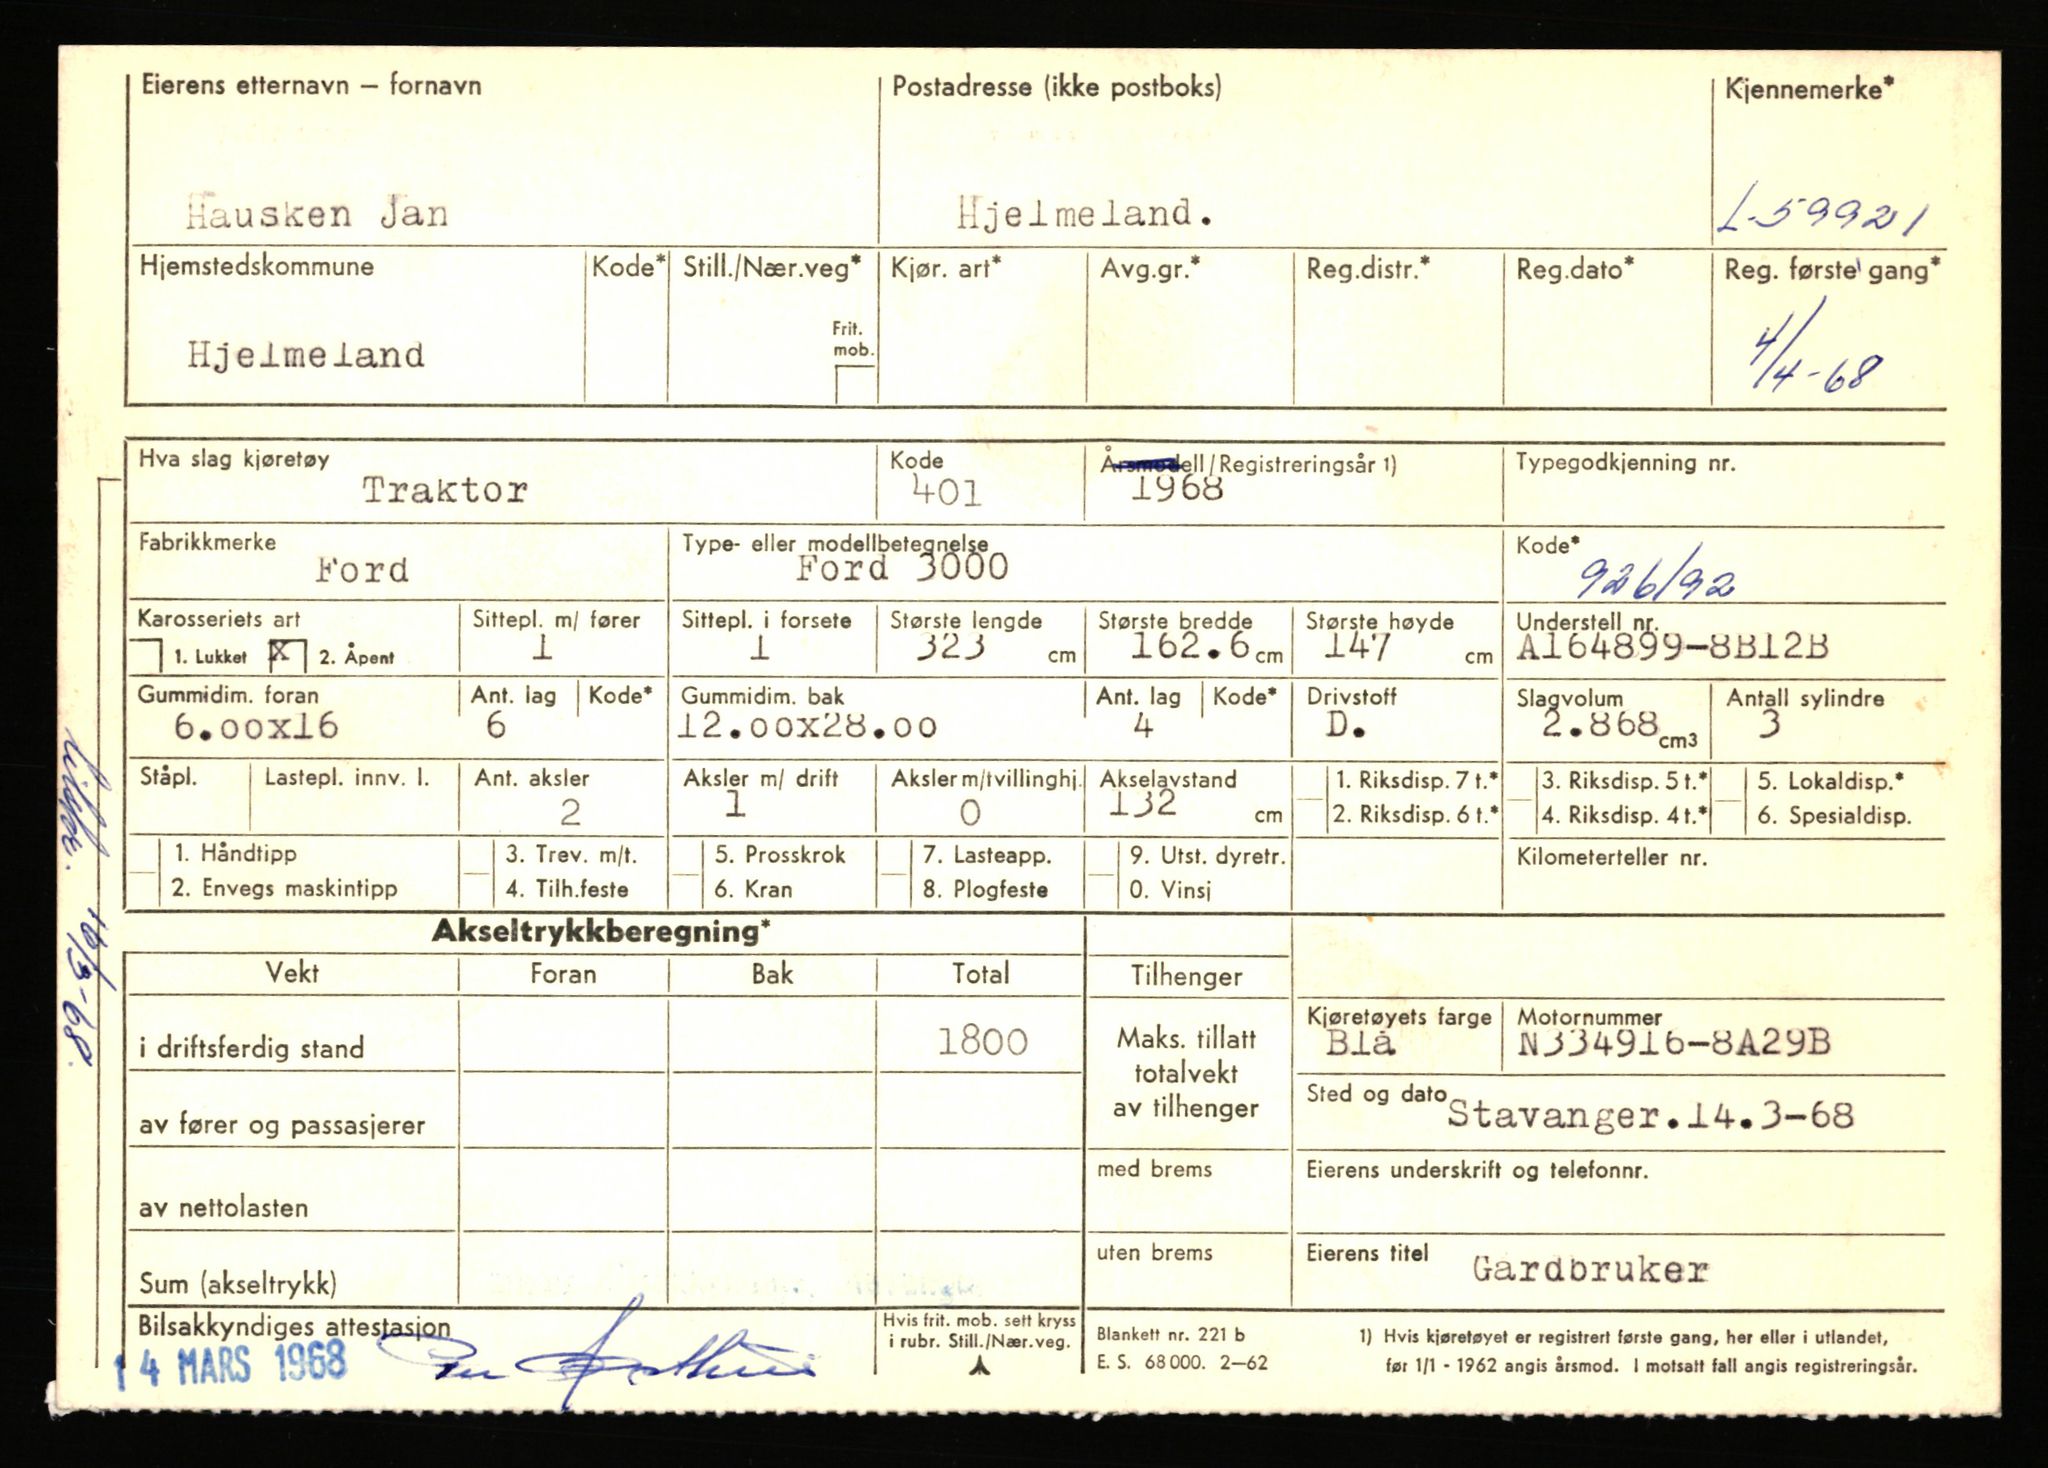 Eierens etternavn – fornavn Postadresse (ikke postboks) Kjennemerke*
Hausken Jan Hjelmeland. L-59921
Hjemstedskommune Kode* Still./Nær.veg* Kjør. art* Avg.gr.* Reg.distr.* Reg.dato* Reg. første gang*
Frit.
mob.
Hjelmeland 4/4-68
Hva slag kjøretøy Kode Årsmodell/Registreringsår 1) Typegodkjenning nr.
Traktor 401 1968
Fabrikkmerke Type- eller modellbetegnelse Kode*
Ford Ford 3000 926/92
Karosseriets art Sittepl. m/ fører Sittepl. i forsete Største lengde Største bredde Største høyde Understell nr.
1. Lukket X 2. Åpent 1 1 323 cm 162.6 cm 147 cm A164899-8B12B
Gummidim. foran Ant. lag Kode* Gummidim. bak Ant. lag Kode* Drivstoff Slagvolum Antall sylindre
6.00x16 6 12.00x28.00 4 D. 2.868 cm3 3
Ståpl. Lastepl. innv. l. Ant. aksler Aksler m/ drift Aksler m/tvillinghj. Akselavstand 1. Riksdisp. 7 t.* 3. Riksdisp. 5 t.* 5. Lokaldisp.*
2 1 0 132 cm 2. Riksdisp. 6 t.* 4. Riksdisp. 4 t.* 6. Spesialdisp.
1. Håndtipp 3. Trev. m/t. 5. Prosskrok 7. Lasteapp. 9. Utst. dyretr. Kilometerteller nr.
2. Envegs maskintipp 4. Tilh.feste 6. Kran 8. Plogfeste 0. Vinsj
Akseltrykkberegning*
Vekt Foran Bak Total Tilhenger
i driftsferdig stand 1800
Maks. tillatt
totalvekt
av tilhenger
Kjøretøyets farge Motornummer
Blå N334916-8A29B
av fører og passasjerer
Sted og dato Stavanger.14.3-68
av nettolasten
med brems
Eierens underskrift og telefonnr.
Sum (akseltrykk)
uten brems
Eierens titel Gardbruker
Bilsakkyndiges attestasjon
14 MARS 1968
Hvis frit. mob. sett kryss
i rubr. Still./Nær.veg.
Blankett nr. 221 b
E. S. 68 000. 2–62
1) Hvis kjøretøyet er registrert første gang, her eller i utlandet,
før 1/1 - 1962 angis årsmod. I motsatt fall angis registreringsår.